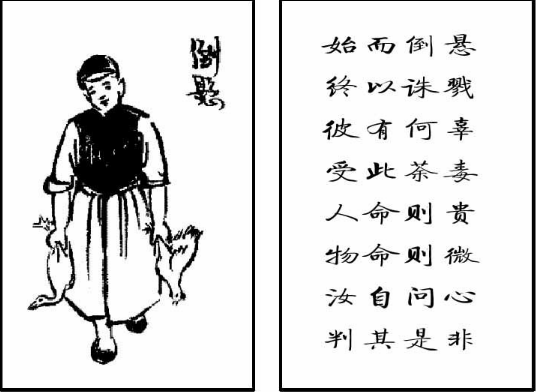 倒懸
始而倒悬
终以诛戮
彼有何辜
受此荼毒
人命则贵
物命则微
汝自问心
判其是非